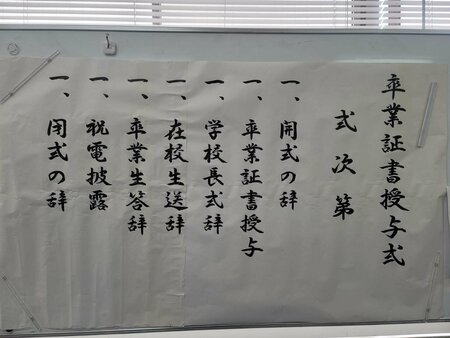 卒業証書授与式
式次第
一、開式の辞
一、卒業証書授与
一、学校長式辞
一、在校生送辞
一、卒業生答辞
一、祝電披露
一、閉式の辞